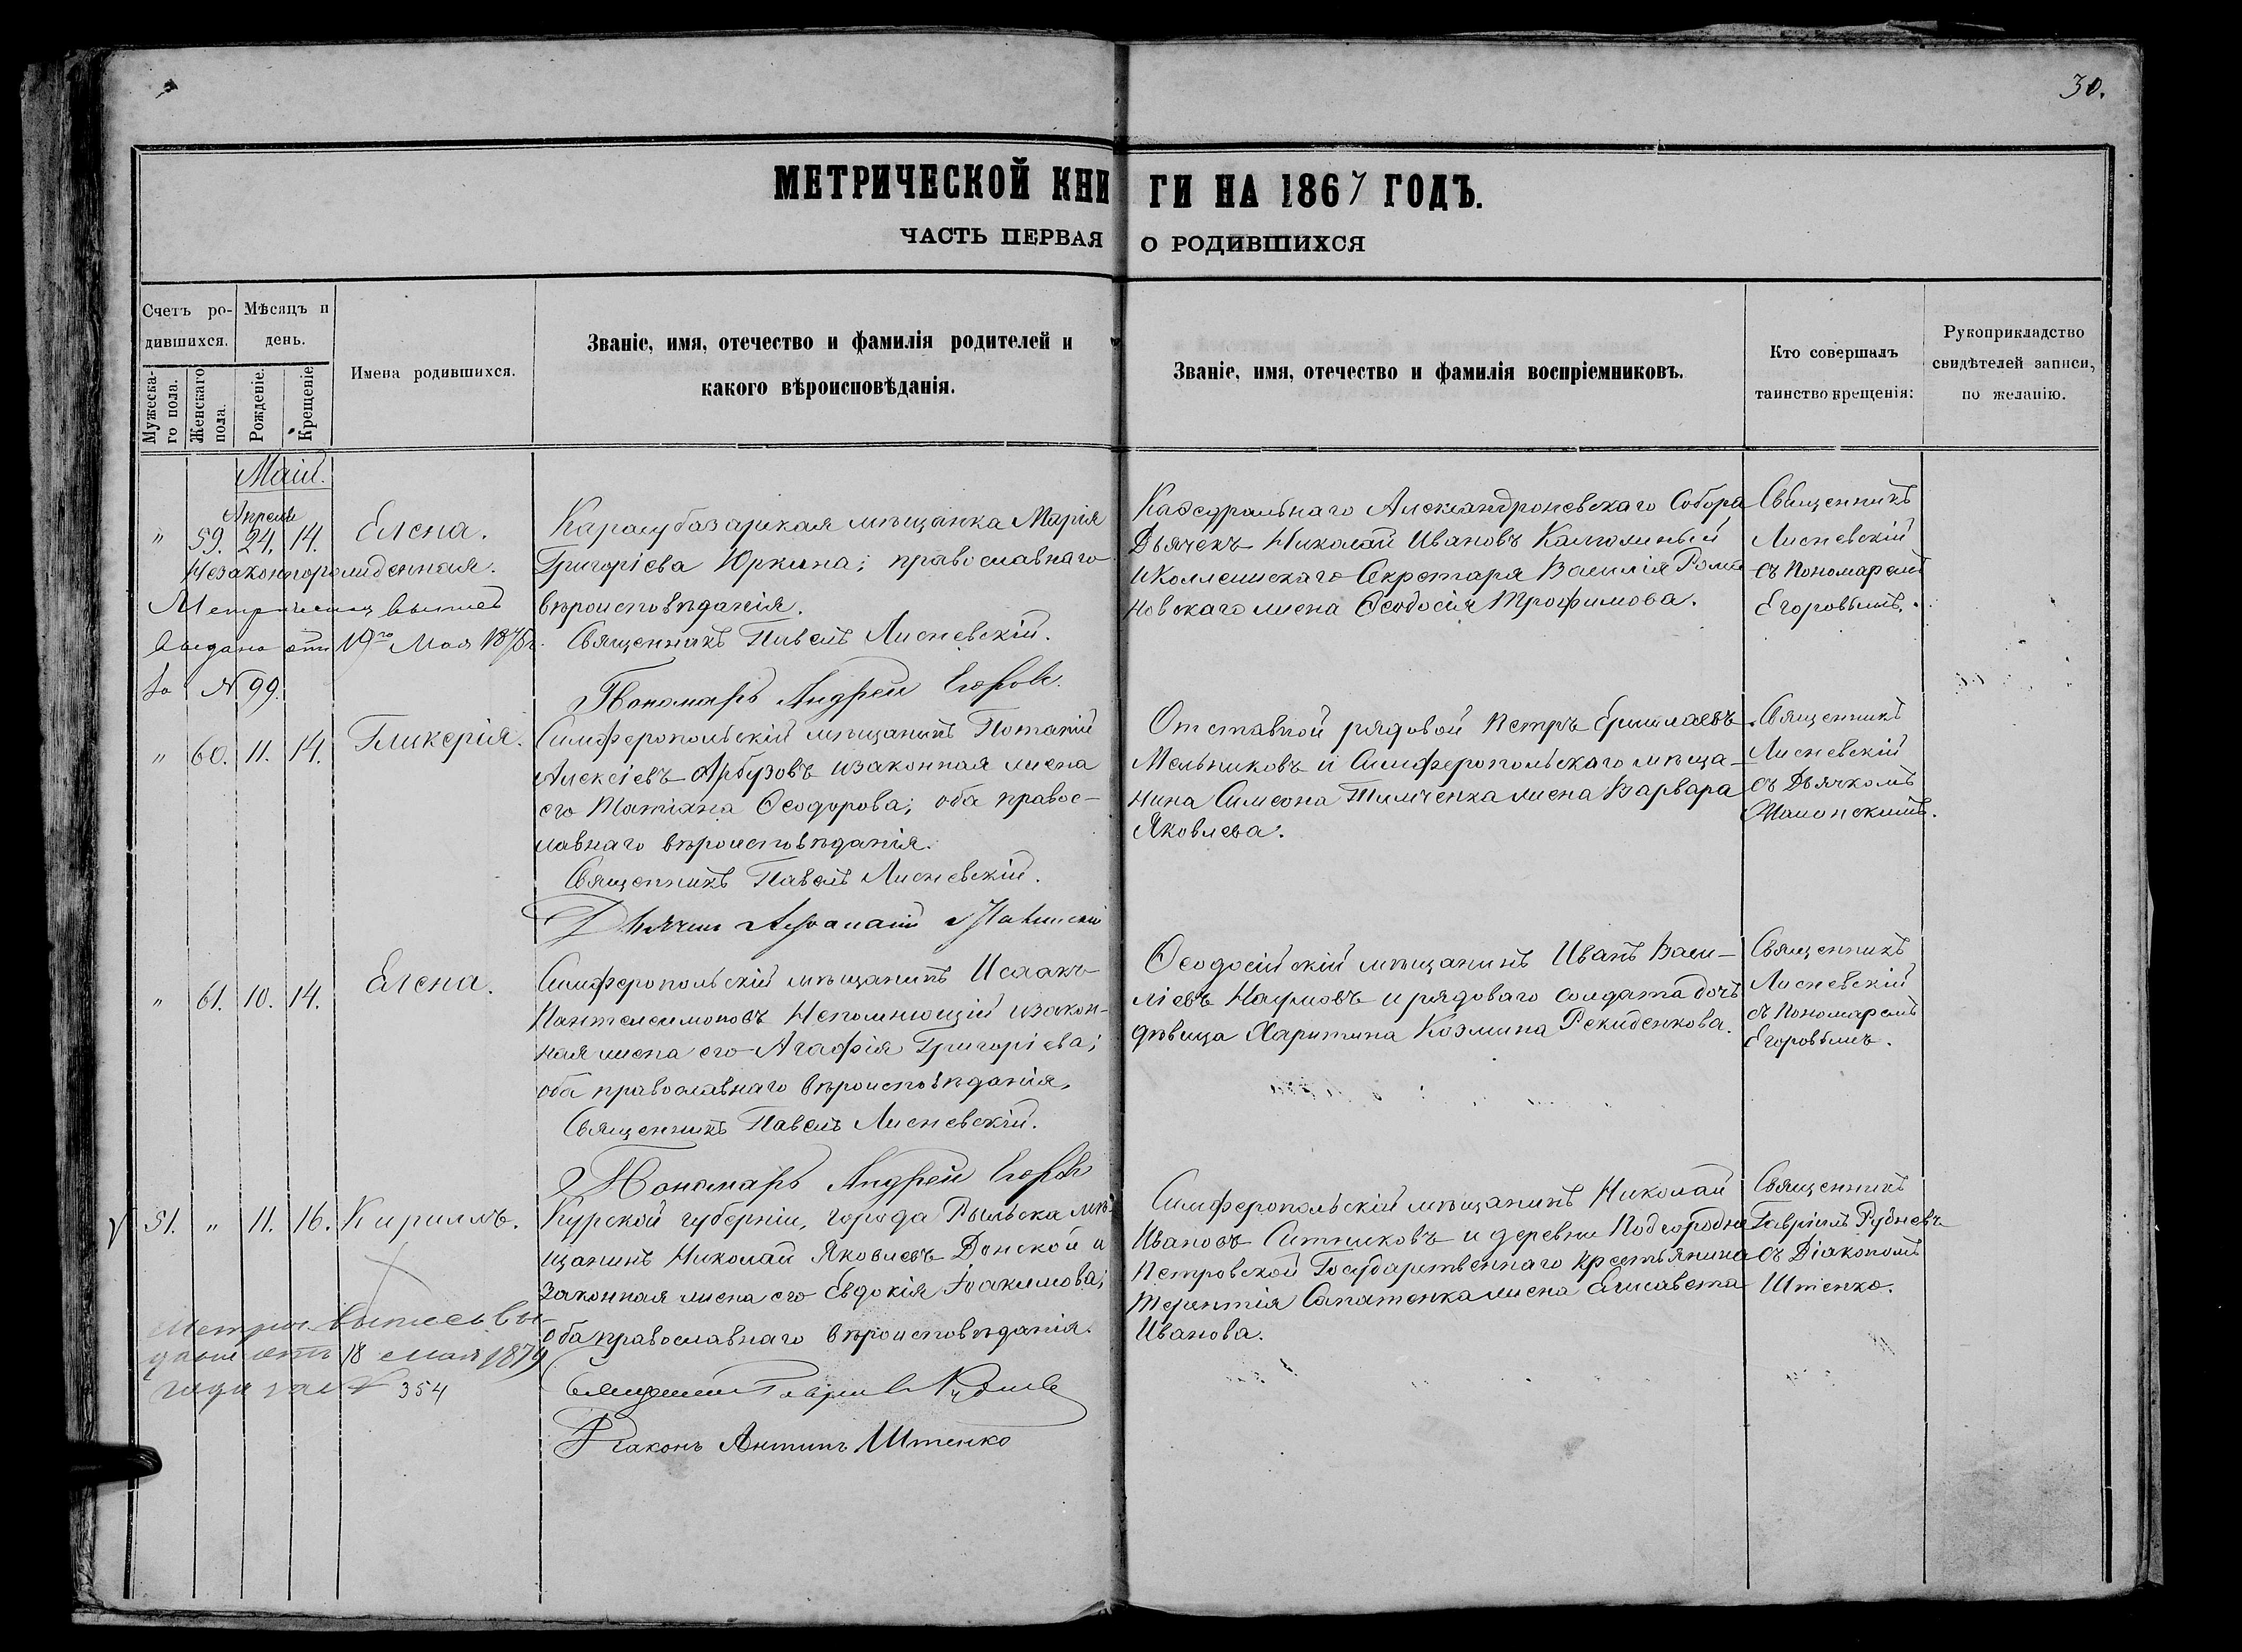 30.
МЕТРИЧЕСКОЙ КНИ ГИ НА 1867 ГОДЪ.
ЧАСТЬ ПЕРВАЯ О РОДИВШИХСЯ
Счетъ ро-
дившихся.
Мужеска-
го пола.
Женскаго
пола.
Мѣсяцъ и
день.
Рожденіе.
Крещеніе
Имена родившихся.
Званіе, имя, отечество и фамилія родителей и
какого вѣроисповѣданія.
Званіе, имя, отечество и фамилія воспріемниковъ.
Кто совершалъ
таинство крещенія:
Рукоприкладство
свидѣтелей записи,
по желанію.
Маій.
Апреля
" 59. 24. 14. Елена.
Незаконнорожденная.
выдано отъ 19го Мая
За № 99.
Карасубазарская мѣщанка Марія
Григоріева Юркина; православнаго
вѣроисповѣданія.
Священникъ Павелъ Лисневскій.
Пономарь Андрей Егоровъ.
Каѳедральнаго Александроневскаго Собора
Дьячекъ Николай Ивановъ
и Коллежскаго Секретаря Василія Рома
новскаго жена Ѳеодосія Трофимова.
Священникъ
Лисневскій
съ Пономаремъ
Егоровымъ.
" 60. 11. 14. Гликерія.
Симферопольскій мѣщанинъ Потапій
Алексіевъ Арбузовъ и законная жена
его Татіана Ѳеодорова; оба правос-
лавнаго вѣроисповѣданія.
Священникъ Павелъ Лисневскій.
Отставной рядовой Петръ Ермилаевъ
Мельниковъ и Симферопольскаго мѣща-
нина Симеона Тимченка жена Варвара
Яковлева.
Священникъ
Лисневскій
съ Дьячкомъ
" 61. 10. 14. Елена.
Симферопольскій мѣщанинъ Исаакъ
Пантелеимоновъ Непомнющій и закон-
ная жена его Агафія Григоріева;
оба православнаго вѣроисповѣданія,
Священникъ Павелъ Лисневскій.
Пономарь Андрей Егоровъ
Ѳеодосійскій мѣщанинъ Иванъ Васи-
ліевъ Наумовъ и рядоваго солдата дочь
дѣвица Харитина Козмина
Священникъ
Лисневскій
съ Пономаремъ
Егоровымъ.
51. " 11. 16. Кириллъ.
дано отъ 18 Мая 1879
года за № 354
Курской губерніи, города Рыльска мѣ-
щанинъ Николай Яковлевъ Донской и
законная жена его Евдокія Іоакимова;
оба православнаго вѣроисповѣданія.
Священникъ Гавріилъ Рудневъ
Діаконъ Антипъ Штенко
Симферопольскій мѣщанинъ Николай
Ивановъ Ситниковъ и деревни Подгородне
Петровской Государственнаго крестьянина
Терентія Сапатенка жена Елисавета
Иванова.
Священникъ
Гавріилъ Рудневъ
съ Діакономъ
Штенко.